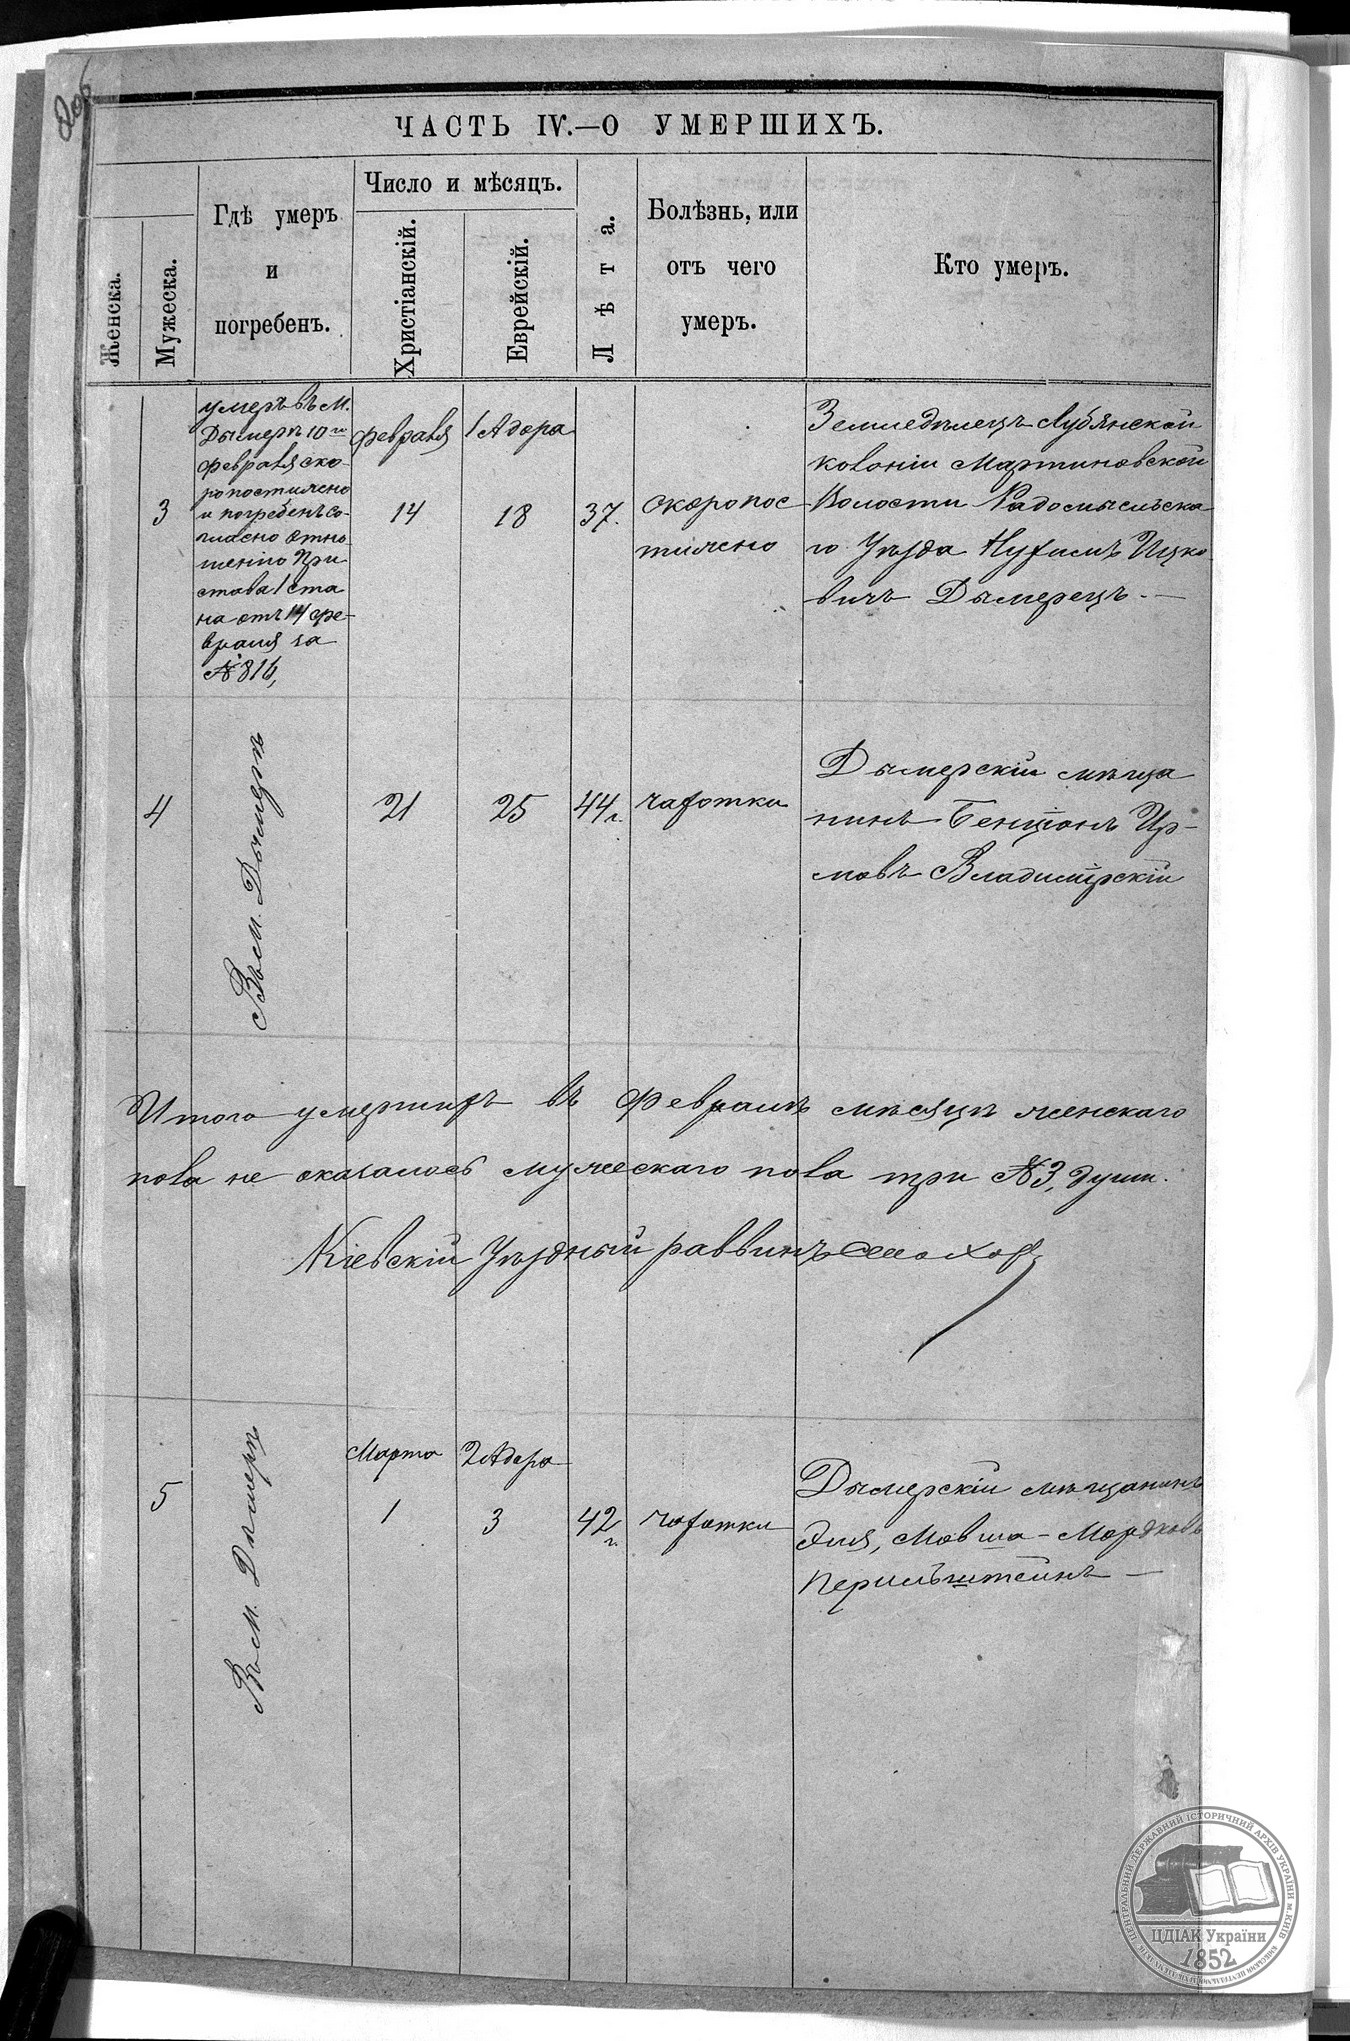 206
ЧАСТЬ IV.—О УМЕРШИХЪ.
Женска.
Мужеска.
Гдѣ умеръ
и
погребенъ.
Число и мѣсяцъ.
Христіанскій.
Еврейскій.
Лѣта.
Болѣзнь, или
отъ чего
умеръ.
Кто умеръ.
3
умеръ въ М.
Дымерѣ 10го
февраля ско-
ропостижно
и погребенъ со-
гласно отно-
шенію При
става 1 ста
на отъ 14 фе-
враля за
№ 816,
февраля
14
1 Адара
18
37.
скоропос
тижно
Земледѣлецъ Лубянской
колоніи Мартиновской
Волости Радомысльска
го Уѣзда Нухимъ Ицко-
вичъ Дымерецъ. —
4
Въ М. Дымерѣ
21
25
44 г.
чахотки
Дымерскій мѣща
нинъ Бенціонъ Ир-
мовъ Владимірскій
Итого умершихъ въ Февралѣ мѣсяцѣ женскаго
пола не оказалось мужескаго пола три № 3, души.
Кіевскій Уѣздный раввинъ
5
Въ М. Дымерѣ
Марта
1
2 Адара
3
42 г.
чахотки
Дымерскій мѣщанинъ
Эля, Мовша-Мордковъ
Перильштейнъ —
ЦЕНТРАЛЬНИЙ ДЕРЖАВНИЙ ІСТОРИЧНИЙ АРХІВ УКРАЇНИ м.КИЇВ
ЦДІАК України
1852